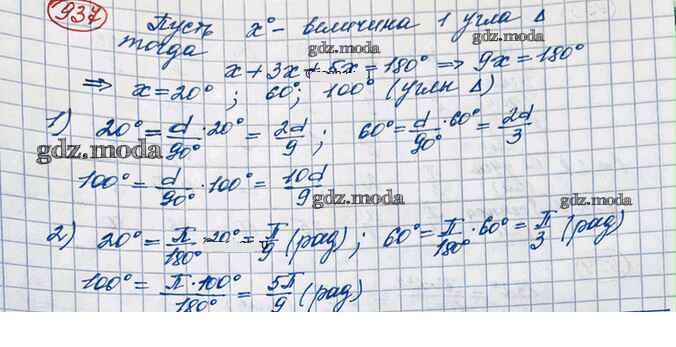 937
Пусть x° – величина 1 угла Δ
тогда
gdz.moda
gdz.moda
x + 3x + 5x = 180° => 9x = 180°
=> x = 20° ; 60°; 100° (углы Δ)
1) 20° = d/90° · 20° = 2d/9 ; 60° = d/90° · 60° = 2d/3
gdz.moda
100° = d/90° · 100° = 10d/9
gdz.moda
gdz.moda
2) 20° = π/180° · 20° = π/9 (рад) ; 60° = π/180° · 60° = π/3 (рад)
100° = π · 100°/180° = 5π/9 (рад)